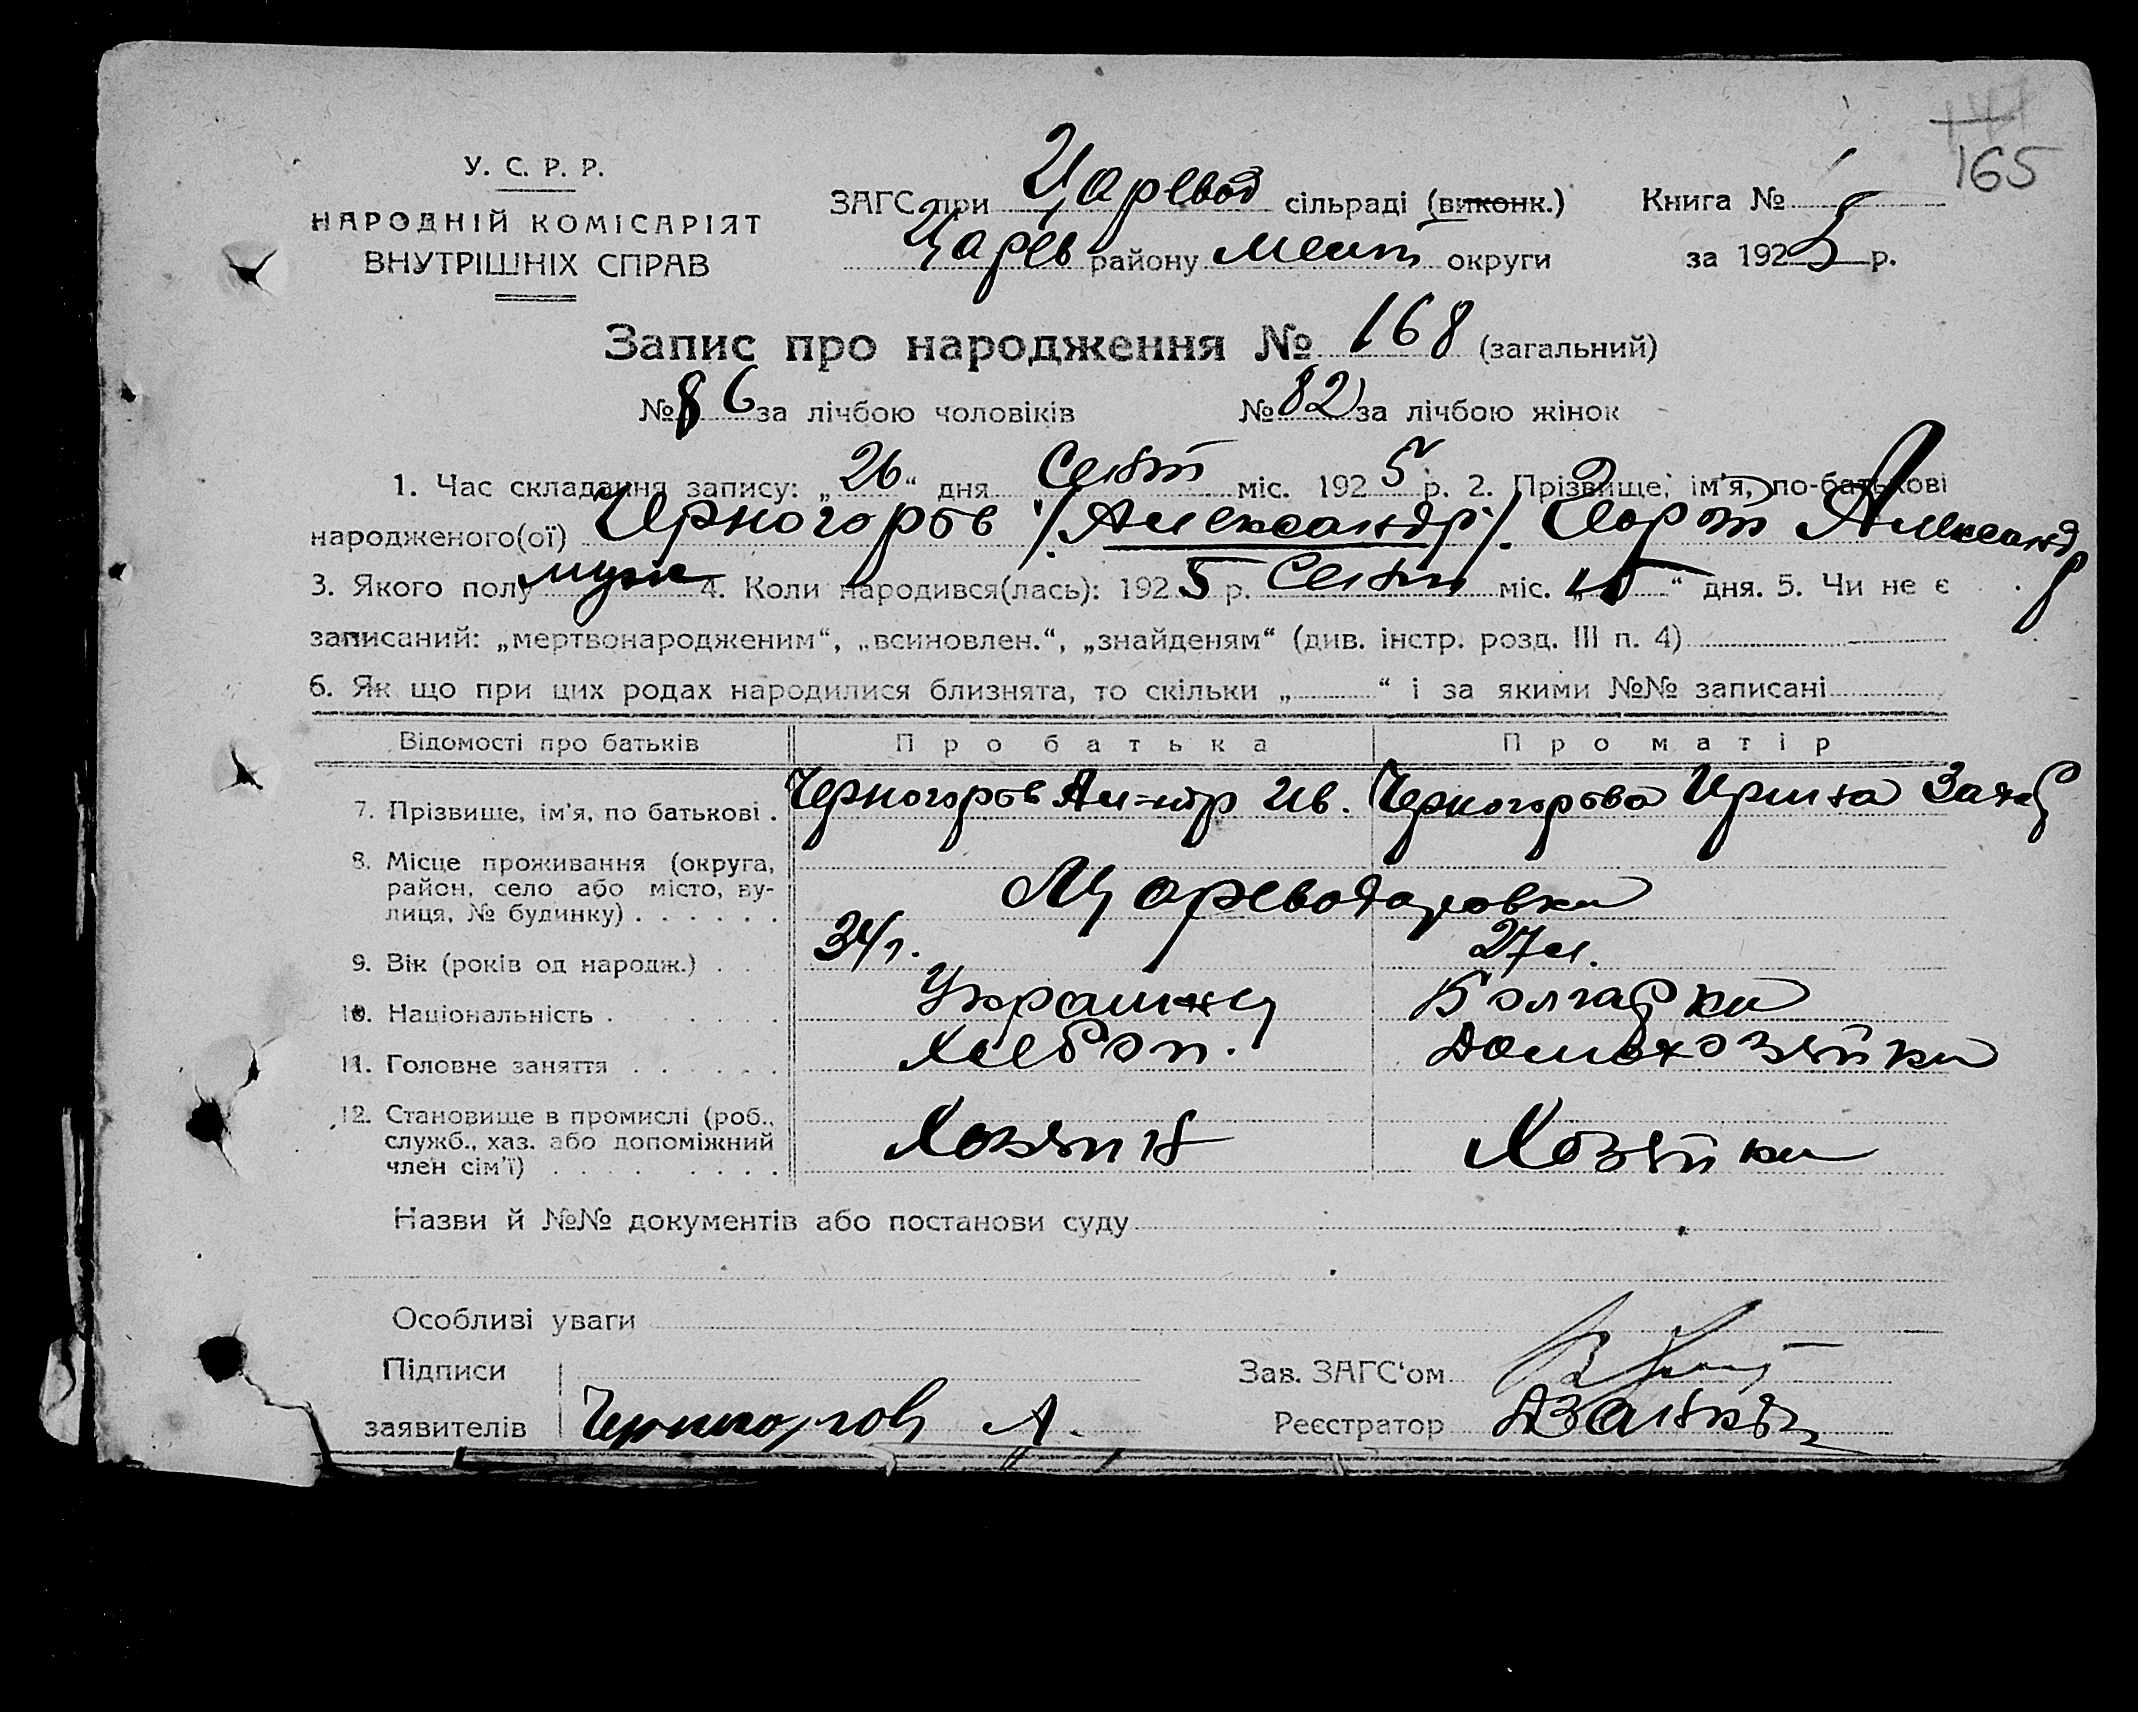 147
165
У. С. Р. Р.
НАРОДНІЙ КОМІСАРІЯТ
ВНУТРІШНІХ СПРАВ
ЗАГС при Царевод сільраді (виконк.) Книга №
Царев району Мелит округи за 1925 р.
Запис про народження № 168 (загальний)
№ 86 за лічбою чоловіків № 82 за лічбою жінок
1. Час складання запису: „26“ дня Сент міс. 1925 р. 2. Прізвище, ім’я, по-батькові
народженого(ої) Черногоров /Александр/. Александр
3. Якого полу муж 4. Коли народився(лась): 1925 р. Сент міс. „15“ дня. 5. Чи не є
записаний: „мертвонародженим“, „всиновлен.“, „знайденям“ (див. інстр. розд. III п. 4)
6. Як що при цих родах народилися близнята, то скільки „ “ і за якими №№ записані
Відомості про батьків Про батька Про матір
7. Прізвище, ім’я, по батькові . Черногоров Ал-ндр Ив. Черногорова Ирина Захар
8. Місце проживання (округа,
район, село або місто, ву-
лиця, № будинку) . . . . . . Цареводаровка
9. Вік (років од народж.) . . 34 г. 27 л.
10. Національність . . . . . . Украинец Болгарка
11. Головне заняття . . . . . . Хлебоп. Домохозяйка
12. Становище в промислі (роб.,
служб., хаз. або допоміжний
член сім’ї) . . . . . . . . Хозяин Хозяйка
Назви й №№ документів або постанови суду
Особливі уваги
Підписи Зав. ЗАГС‘ом
заявителів Черногоров А. Реєстратор